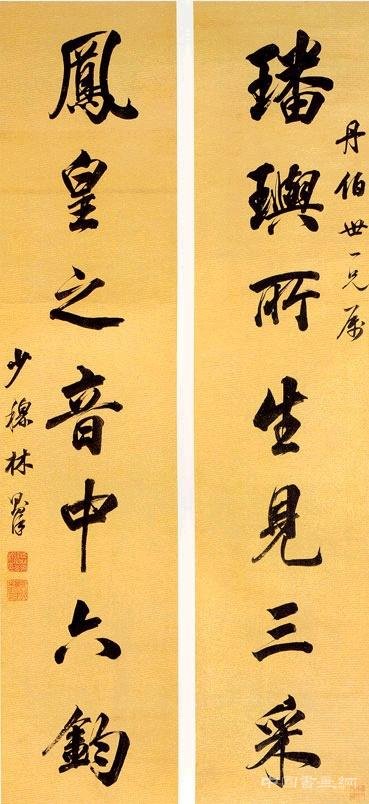 丹伯世一兄屬
璠璵所生見三采
鳳皇之音中六鈞
少穆林則徐
中国书画网